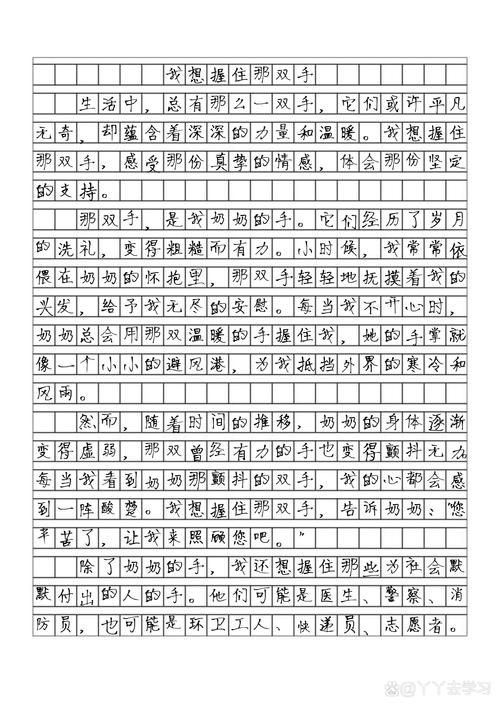 我想握住那双手
生活中，总有那么一双手，它们或许平凡
无奇，却蕴含着深深的力量和温暖。我想握住
那双手，感受那份真挚的情感，体会那份坚定
的支持。
那双手，是我奶奶的手。它们经历了岁月
的洗礼，变得粗糙而有力。小时候，我常常依
偎在奶奶的怀抱里，那双手轻轻地抚摸着我的
头发，给予我无尽的安慰。每当我不开心时，
奶奶总会用那双温暖的手握住我，她的手掌就
像一个小小的避风港，为我抵挡外界的寒冷和
风雨。
然而，随着时间的推移，奶奶的身体逐渐
变得虚弱，那双曾经有力的手也变得颤抖无力
每当我看到奶奶那颤抖的双手，我的心都会感
到一阵酸楚。我想握住那双手，告诉奶奶："您
辛苦了，让我来照顾您吧。"
除了奶奶的手，我还想握住那些为社会默
默付出的人的手。他们可能是医生、警察、消
防员，也可能是环卫工人、快递员、志愿者。
丫丫去学习